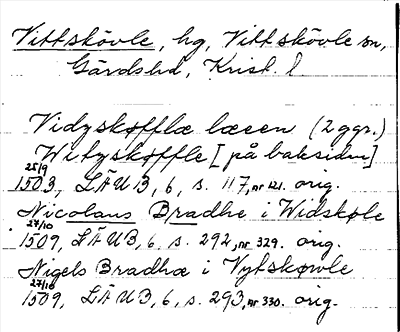 Vittskövle, hg, Vittskövle sn,
Gärdshd, Krist. l
Vidyskøfflæ læen (2 ggr.)
Wityskøffle [på baksidan]
25/9
1503, LÄUB, 6, s. 117, nr 121. orig.
Nicolaus Bradhe i Widskøle
27/10
1509, LÄUB, 6, s. 292, nr 329. orig.
Nigels Bradhæ i Vytskøvle
27/10
1509, LÄUB, 6, s. 293, nr 330. orig.